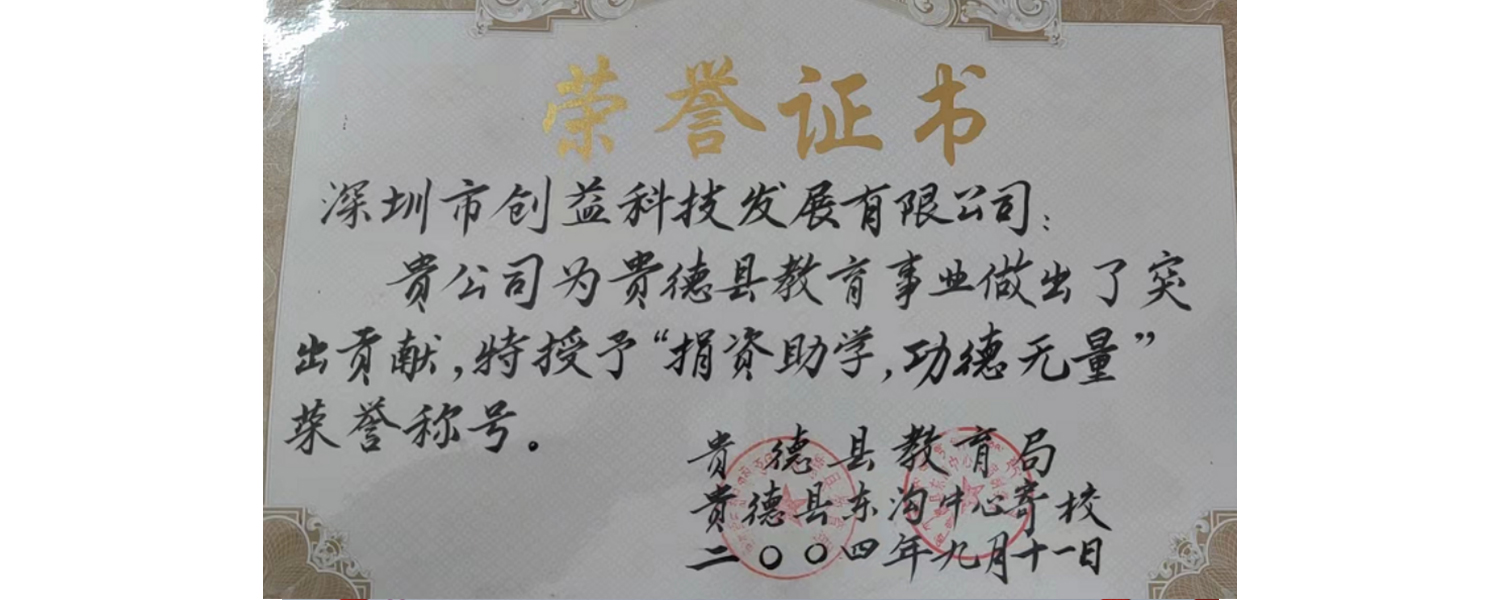 荣誉证书
深圳市创益科技发展有限公司：
贵公司为贵德县教育事业做出了突
出贡献,特授予“捐资助学,功德无量”
荣誉称号。
贵德县教育局
贵德县东沟中心寄校
二〇〇四年九月十一日